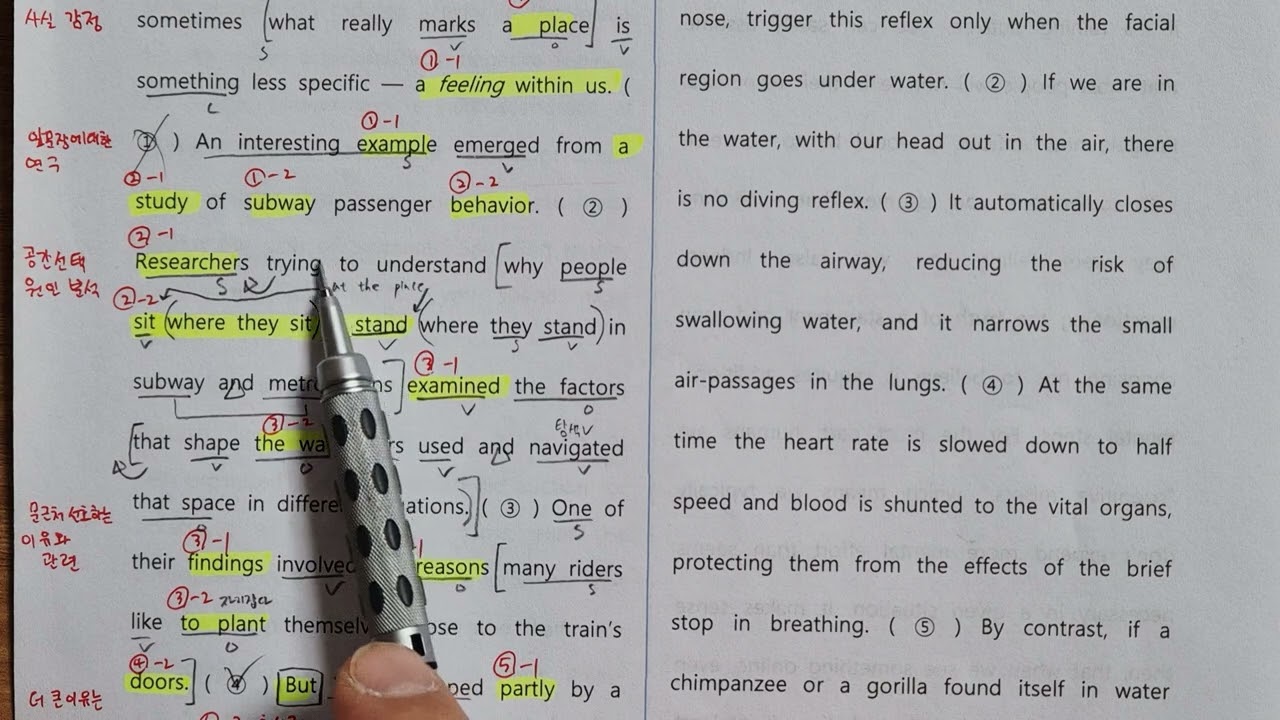 사실 감정
sometimes [what really marks a place] is
S V O V
①-1
something less specific — a feeling within us. (
C
①-1
일목장에대한
연구
① ) An interesting example emerged from a
S V
②-1 ①-2 ②-2
study of subway passenger behavior. ( ② )
②-1
공간선택
원인 분석
Researchers trying to understand [why people
S at the place S
②-2
sit (where they sit) stand (where they stand) in
V V S V
③-1
subway and examined the factors
V O
③-2 탐색V
[that shape the used and navigated
V O V V
that space in ( ③ ) One of
S
문근처 선호하는
이유와
관련
③-1
their findings involved reasons [many riders
V O S
③-2
like to plant to the train's
V O
④-2 ⑤-1
doors.] ( ④ ) But partly by a
더 큰이유는
nose, trigger this reflex only when the facial
region goes under water. ( ② ) If we are in
the water, with our head out in the air, there
is no diving reflex. ( ③ ) It automatically closes
down the airway, reducing the risk of
swallowing water, and it narrows the small
air-passages in the lungs. ( ④ ) At the same
time the heart rate is slowed down to half
speed and blood is shunted to the vital organs,
protecting them from the effects of the brief
stop in breathing. ( ⑤ ) By contrast, if a
chimpanzee or a gorilla found itself in water